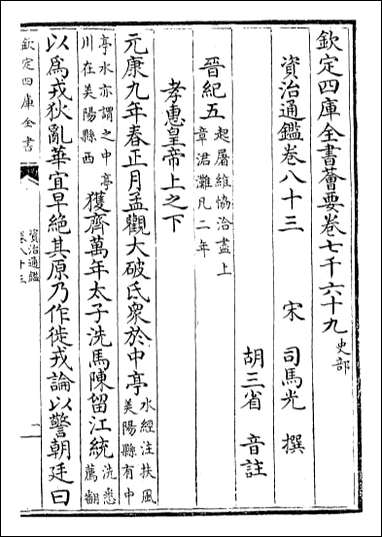 欽定四庫全書薈要卷七千六十九 史部
資治通鑑卷八十三
宋 司馬光 撰
胡三省 音註
晉紀五 起屠維協洽盡上章涒灘凡二年
孝惠皇帝上之下
元康九年春正月孟觀大破氐衆於中亭 水經注扶風美陽縣有中
亭水亦謂之中亭川在美陽縣西 獲齊萬年太子洗馬陳留江統 洗悉薦翻
以為戎狄亂華宜早絕其原乃作徙戎論以警朝廷曰
欽定四庫全書
資治通鑑
卷八十三
一